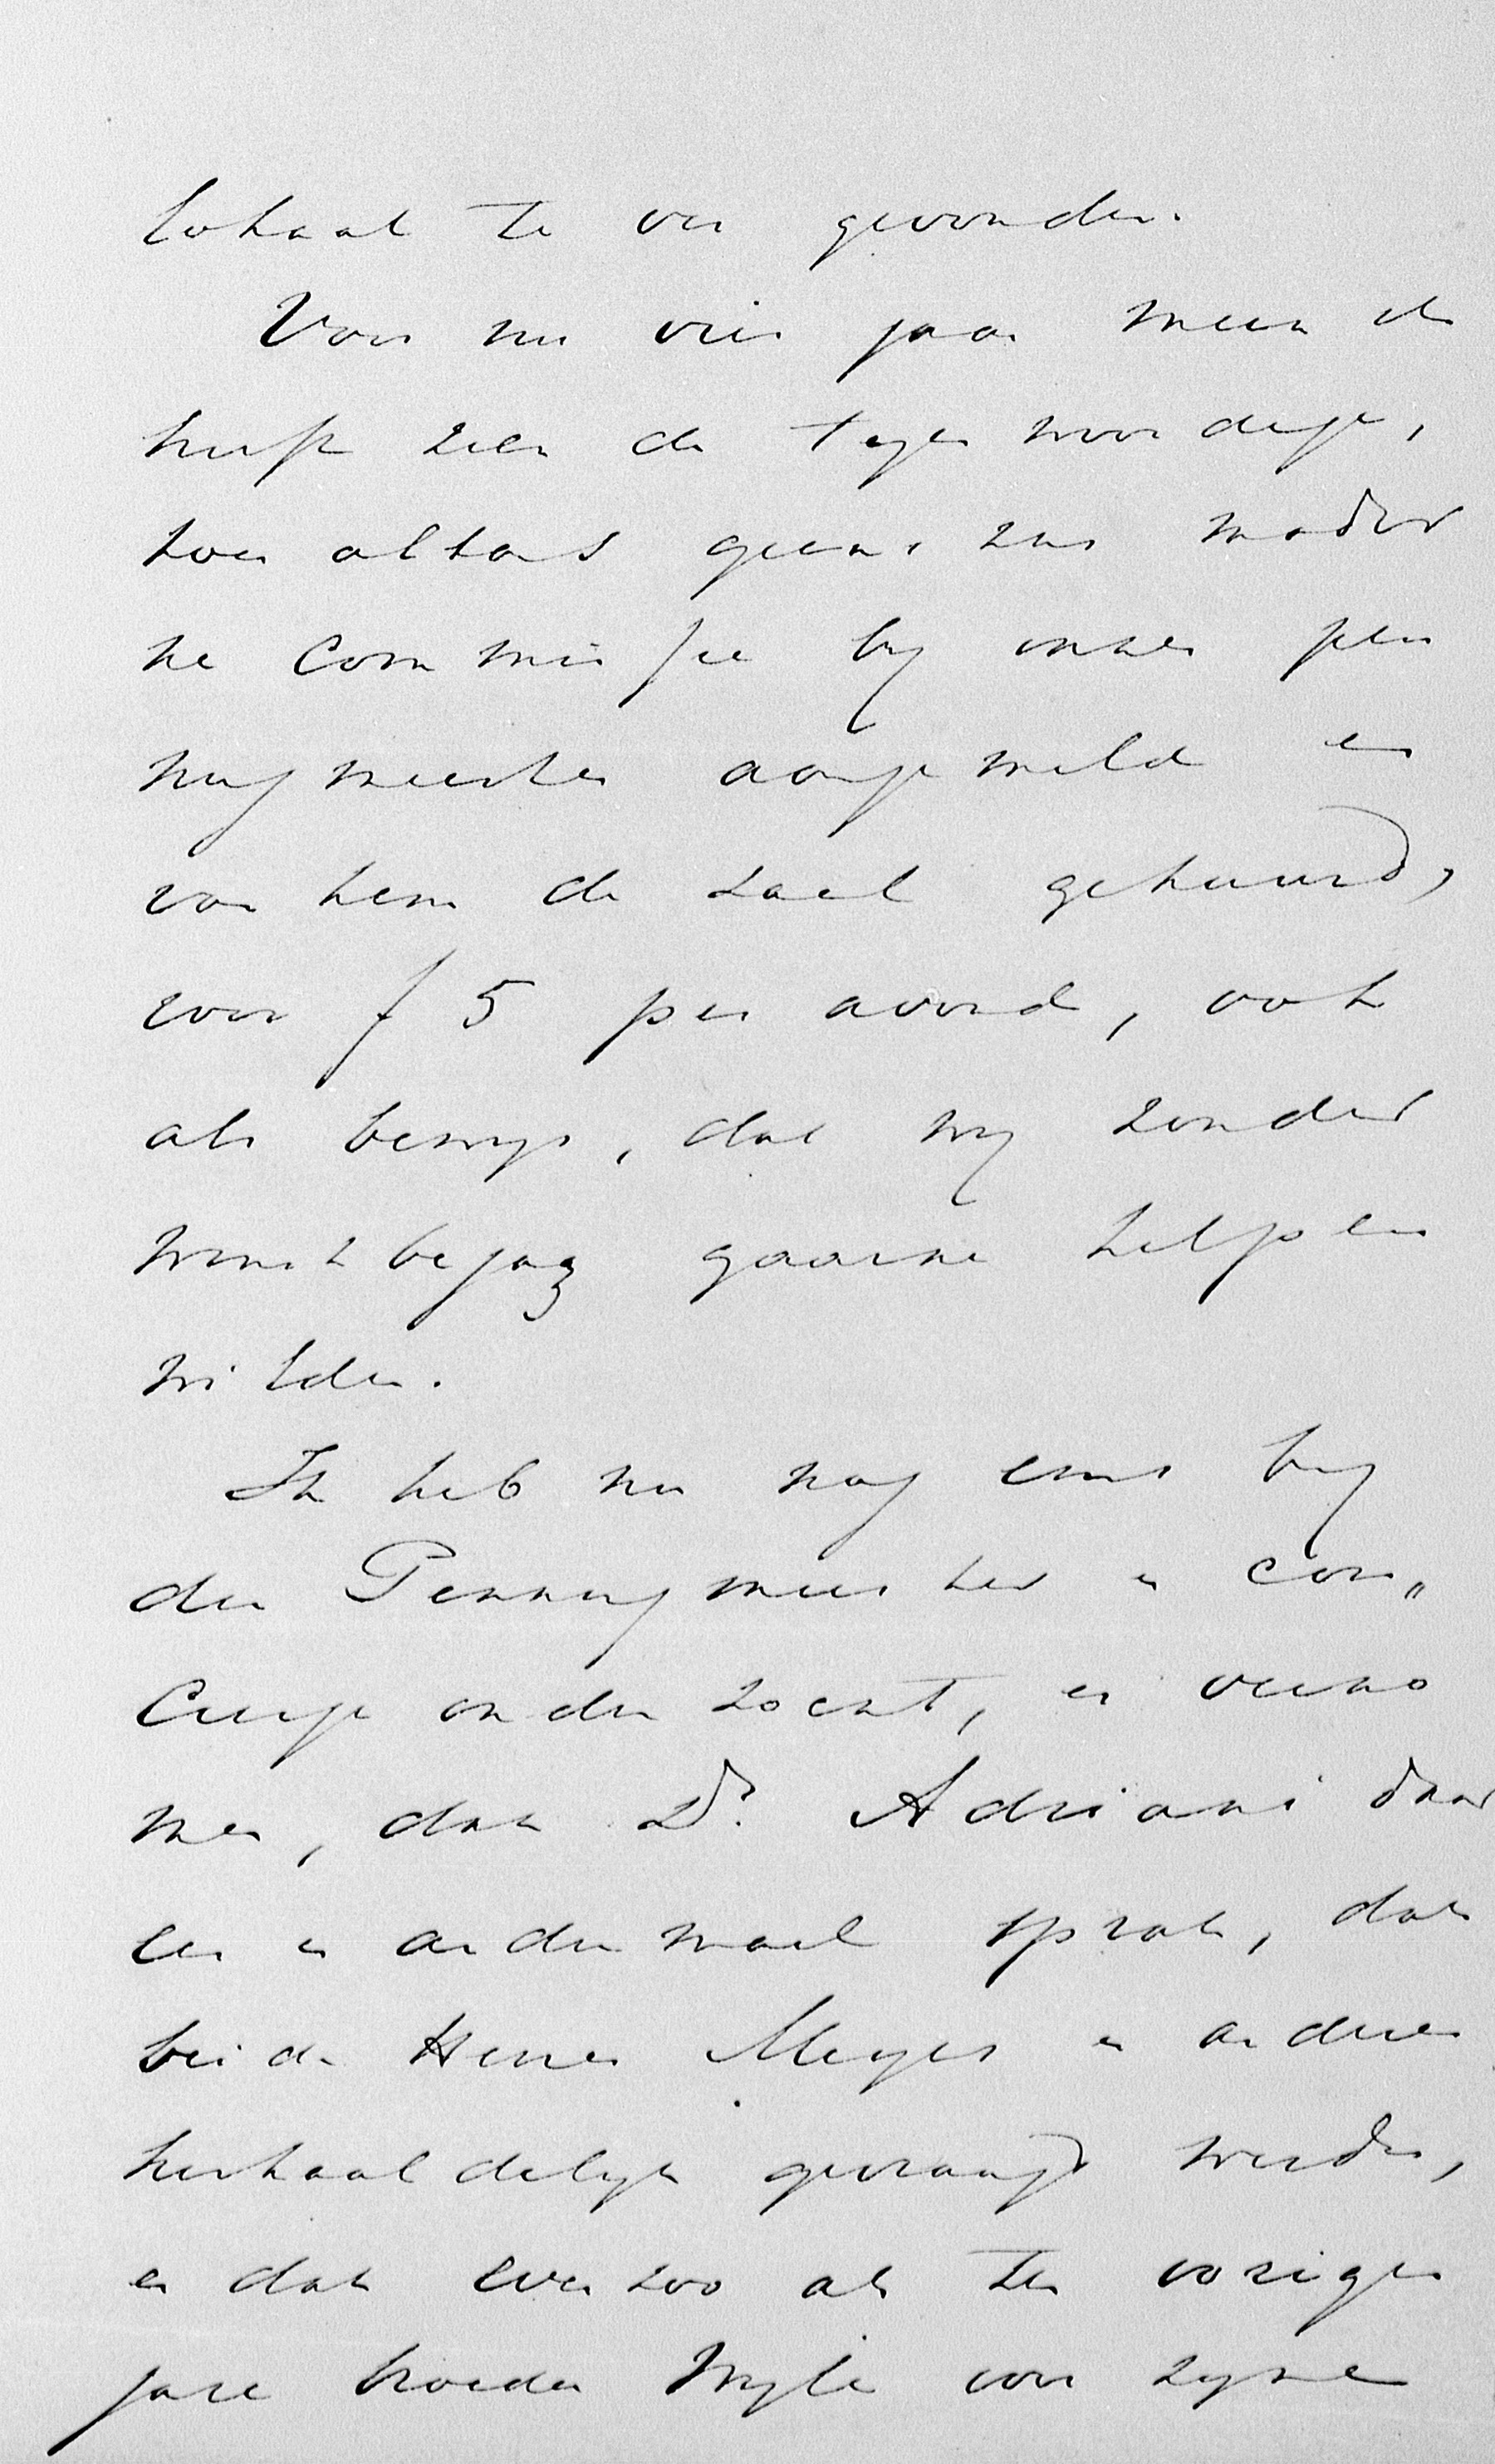 lokaal te ver gevonden.
Voor nu vier jaar meen ik
heeft zich de tegenwoordige,
toen althans geenszins moder
ne Commissie by onzen pen
ningmeester aangemeld en
van hem de zaal gehuurd,
voor f 5 per avond, ook
als bewys, dat wy zonder
winstbejag gaarne helpen
wilden.
Ik heb nu nog eens by
den Penningmeester en con„
Cierge onderzocht, en verno
men, dat Dr. Adriani daar
een en andermaal sprak, dat
beide Heren Meyer en anderen
herhaaldelyk gevraagd werden,
en dat even zoo als ten vorigen
jare broeder Wyle voor zyne